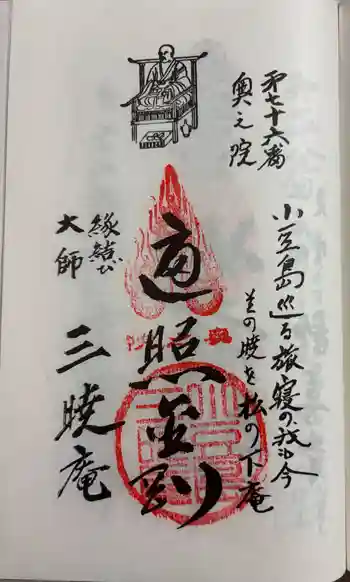 第七十六番
奥之院
小豆島巡る旅寝の我も今
三の暁を松の下庵
遍照金剛
縁結び
大師
三暁庵